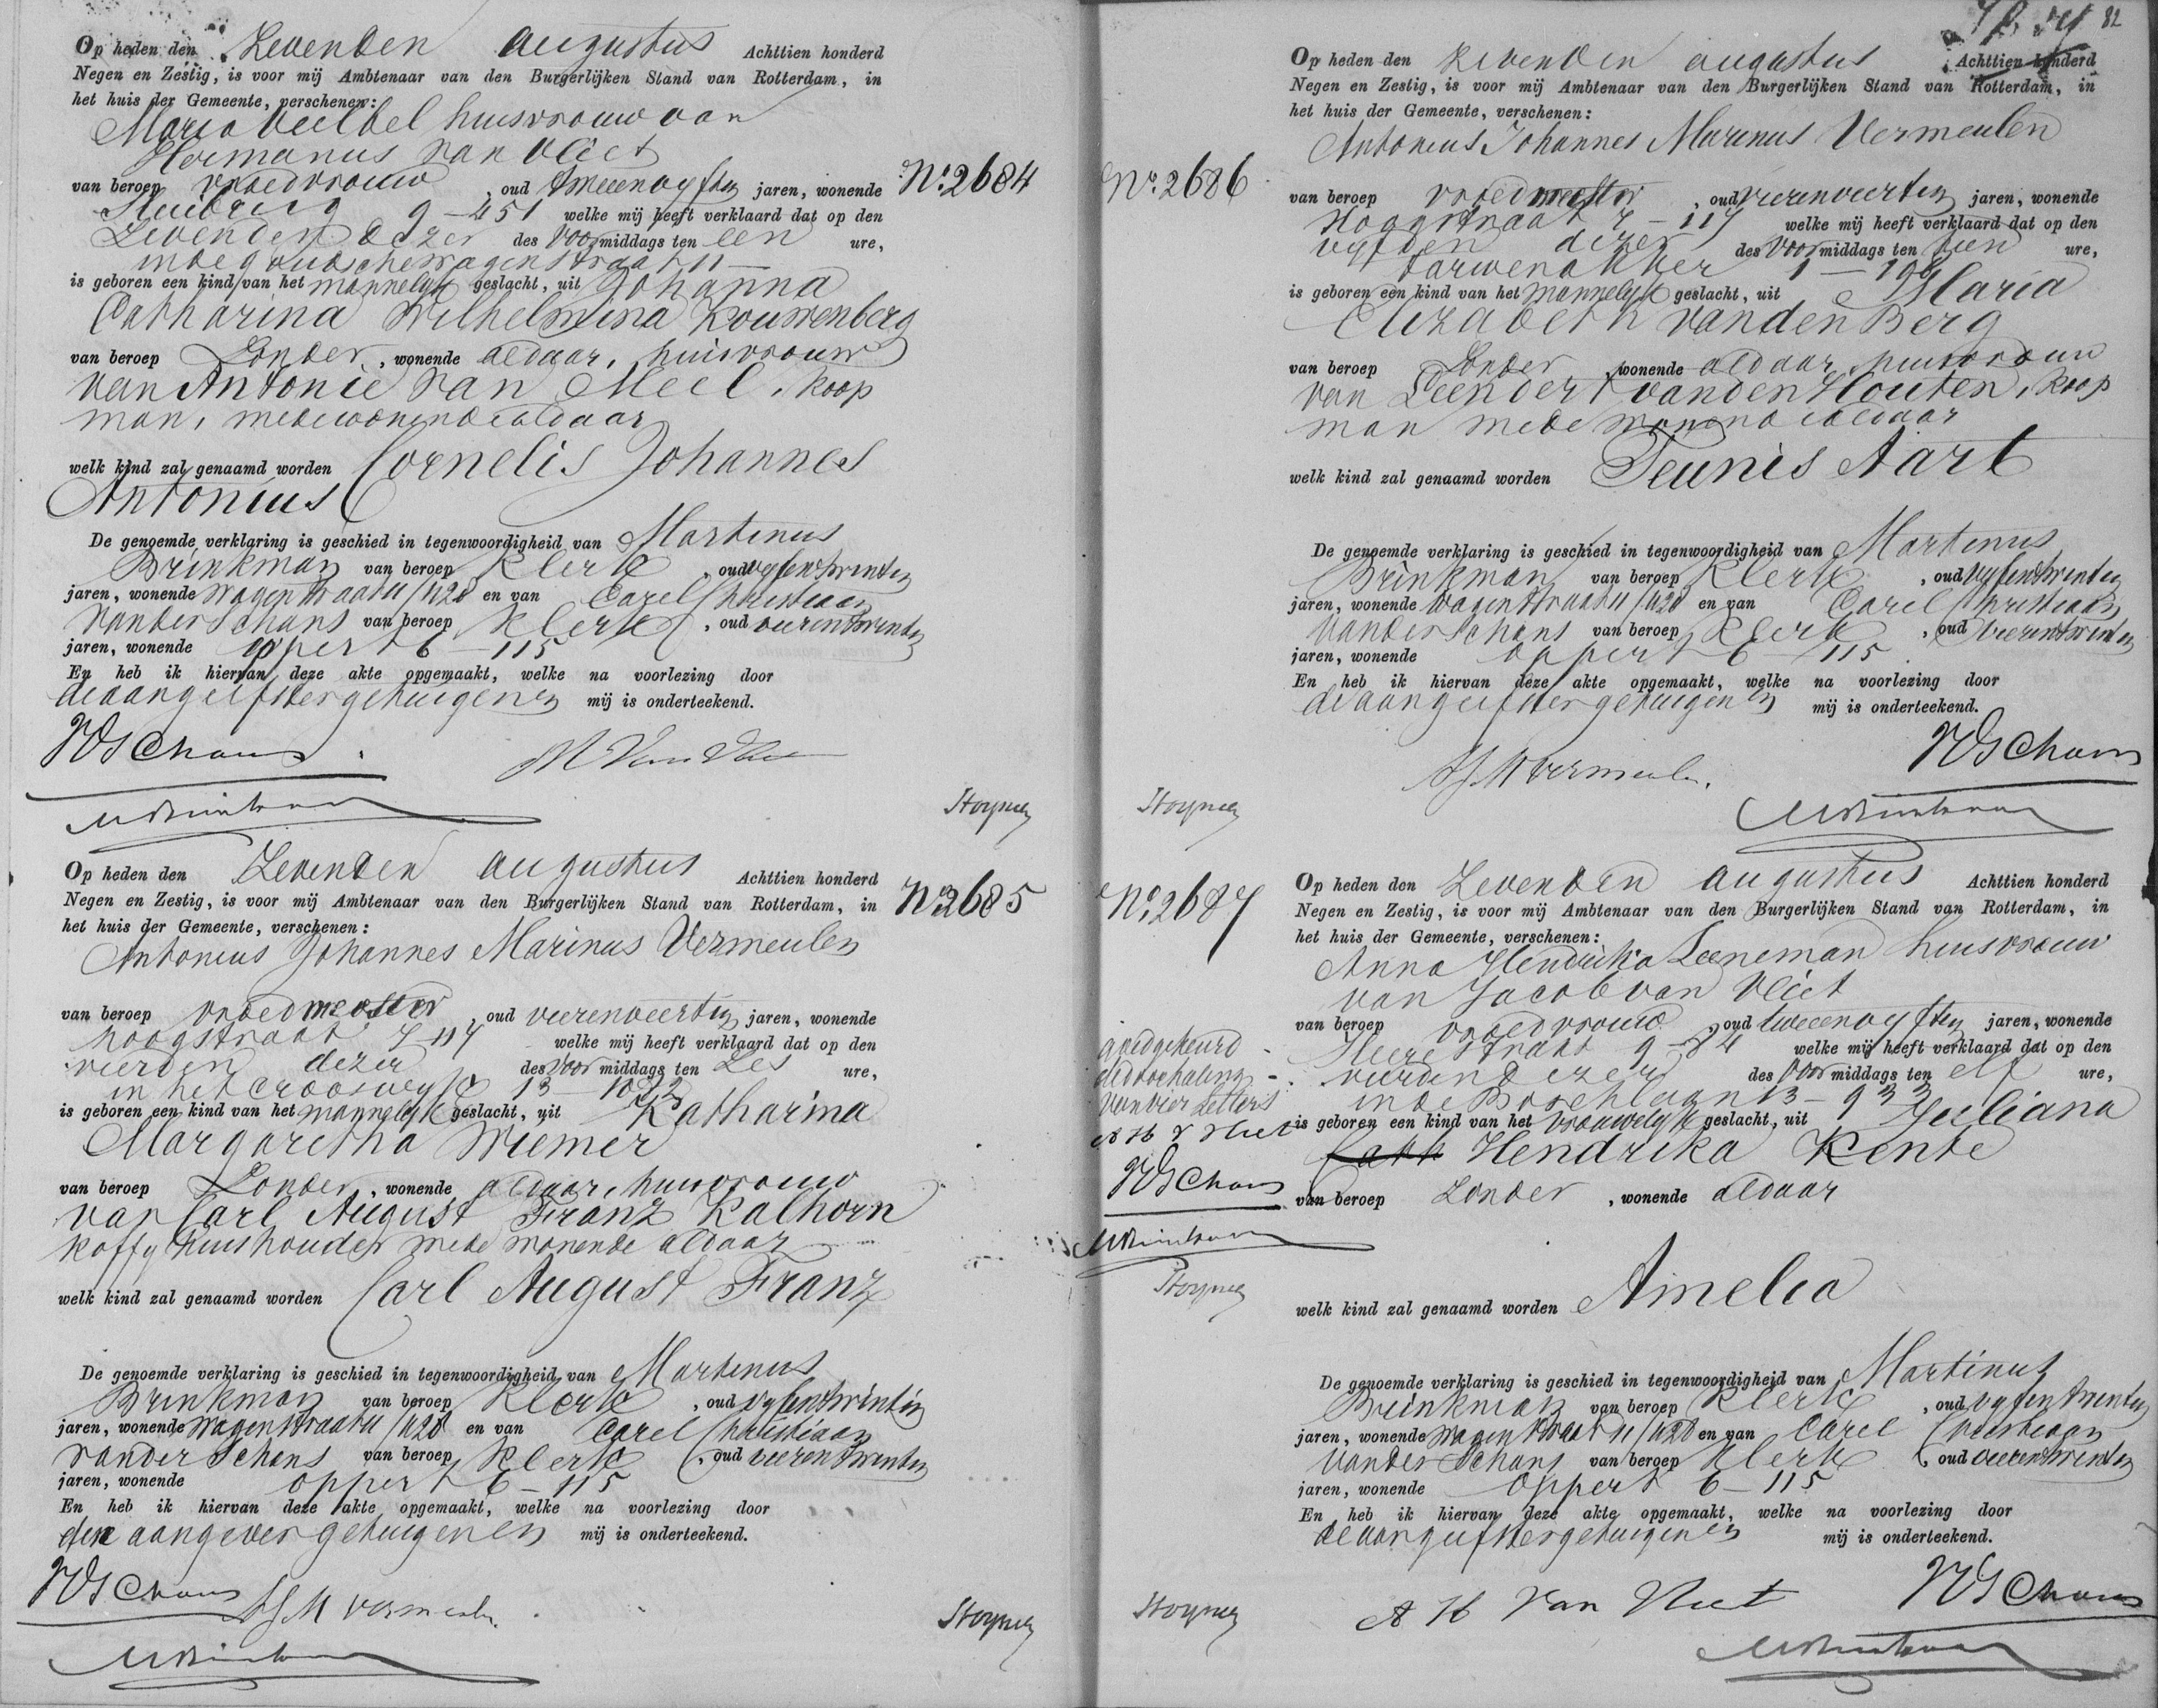 Op heden den Zevenden Augustus Achttien honderd
Negen en Zestig, is voor mij Ambtenaar van den Burgerlijken Stand van Rotterdam, in
het huis der Gemeente, verschenen:
Maria Veelbel huisvrouw van
Hermanus van Vliet
van beroep vroedvrouw, oud tweeenvyftig jaren, wonende
No. 2684
9-451 welke mij heeft verklaard dat op den
Zevenden dezer des Voormiddags ten een ure,
in de Goudschewagenstraat 11
is geboren een kind van het mannelyk geslacht, uit Johanna
Catharina Wilhelmina Kouwenberg
van beroep Zonder, wonende aldaar, huisvrouw
van Antonie van Meel, koop
man, medewonende aldaar
welk kind zal genaamd worden Cornelis Johannes
Antonius
De genoemde verklaring is geschied in tegenwoordigheid van Martinus
Brinkman van beroep Klerk, oud vyfentwintig
jaren, wonende Wagenstraat 11/428 en van Carel Christiaan
van der Schans van beroep Klerk, oud vierentwintig
jaren, wonende Oppert 6-115
En heb ik hiervan deze akte opgemaakt, welke na voorlezing door
de aangeefster getuigen en mij is onderteekend.
VDSchans
M Van Vliet
MBrinkman
Op heden den Zevenden Augustus Achttien honderd
Negen en Zestig, is voor mij Ambtenaar van den Burgerlijken Stand van Rotterdam, in
het huis der Gemeente, verschenen:
No. 2685
Antonius Johannes Marinus Vermeulen
van beroep vroedmeester, oud vierenveertig jaren, wonende
Hoogstraat 7-117 welke mij heeft verklaard dat op den
vierden dezer des Voormiddags ten Zes ure,
in het Crooswyk 13-1072
is geboren een kind van het mannelyk geslacht, uit Katharina
Margaretha Wiemer
van beroep Zonder, wonende aldaar, huisvrouw
van Carl August Franz Kalhorn
koffyhuishouder mede wonende aldaar
welk kind zal genaamd worden Carl August Franz
De genoemde verklaring is geschied in tegenwoordigheid van Martinus
Brinkman van beroep Klerk, oud vyfentwintig
jaren, wonende Wagenstraat 11/428 en van Carel Christiaan
van der Schans van beroep Klerk, oud vierentwintig
jaren, wonende Oppert 6-115
En heb ik hiervan deze akte opgemaakt, welke na voorlezing door
den aangever getuigen en mij is onderteekend.
VDSchans
AJM Vermeulen
MBrinkman
82
Op heden den Zevenden Augustus Achttien honderd
Negen en Zestig, is voor mij Ambtenaar van den Burgerlijken Stand van Rotterdam, in
het huis der Gemeente, verschenen:
Antonius Johannes Marinus Vermeulen
No. 2686
van beroep vroedmeester, oud vierenveertig jaren, wonende
Hoogstraat 7-117 welke mij heeft verklaard dat op den
vyfden dezer des Voormiddags ten tien ure,
Tarwenakker 1-198
is geboren een kind van het mannelyk geslacht, uit Maria
Elizabeth van den Berg
van beroep Zonder, wonende aldaar, huisvrouw
van Leendert van den Houten, koop
man mede wonende aldaar
welk kind zal genaamd worden Teunis Aart
De genoemde verklaring is geschied in tegenwoordigheid van Martinus
Brinkman van beroep Klerk, oud vyfentwintig
jaren, wonende Wagenstraat 11/428 en van Carel Christiaan
van der Schans van beroep Klerk, oud vierentwintig
jaren, wonende Oppert 6-115
En heb ik hiervan deze akte opgemaakt, welke na voorlezing door
de aangeefster getuigen en mij is onderteekend.
VDSchans
AJM Vermeulen.
MBrinkman
Op heden den Zevenden Augustus Achttien honderd
Negen en Zestig, is voor mij Ambtenaar van den Burgerlijken Stand van Rotterdam, in
het huis der Gemeente, verschenen:
No. 2687
Anna Hendrika Leeneman huisvrouw
van Jacob van Vliet
van beroep vroedvrouw, oud tweeenvyftig jaren, wonende
Heerestraat 9-84 welke mij heeft verklaard dat op den
vierden dezer des Voormiddags ten elf ure,
in de Boschlaan 13-933
is geboren een kind van het vrouwelyk geslacht, uit Juliana
Cath Hendrika Kente
van beroep Zonder, wonende aldaar
goedgekeurd
de doorhaling
van vier letters
A H v Vliet
VDSchans
MBrinkman
welk kind zal genaamd worden Amelia
De genoemde verklaring is geschied in tegenwoordigheid van Martinus
Brinkman van beroep Klerk, oud vyfentwintig
jaren, wonende Wagenstraat 11/428 en van Carel Christiaan
van der Schans van beroep Klerk, oud vierentwintig
jaren, wonende Oppert 6-115
En heb ik hiervan deze akte opgemaakt, welke na voorlezing door
de aangeefster getuigen en mij is onderteekend.
A H Van Vliet
VDSchans
MBrinkman